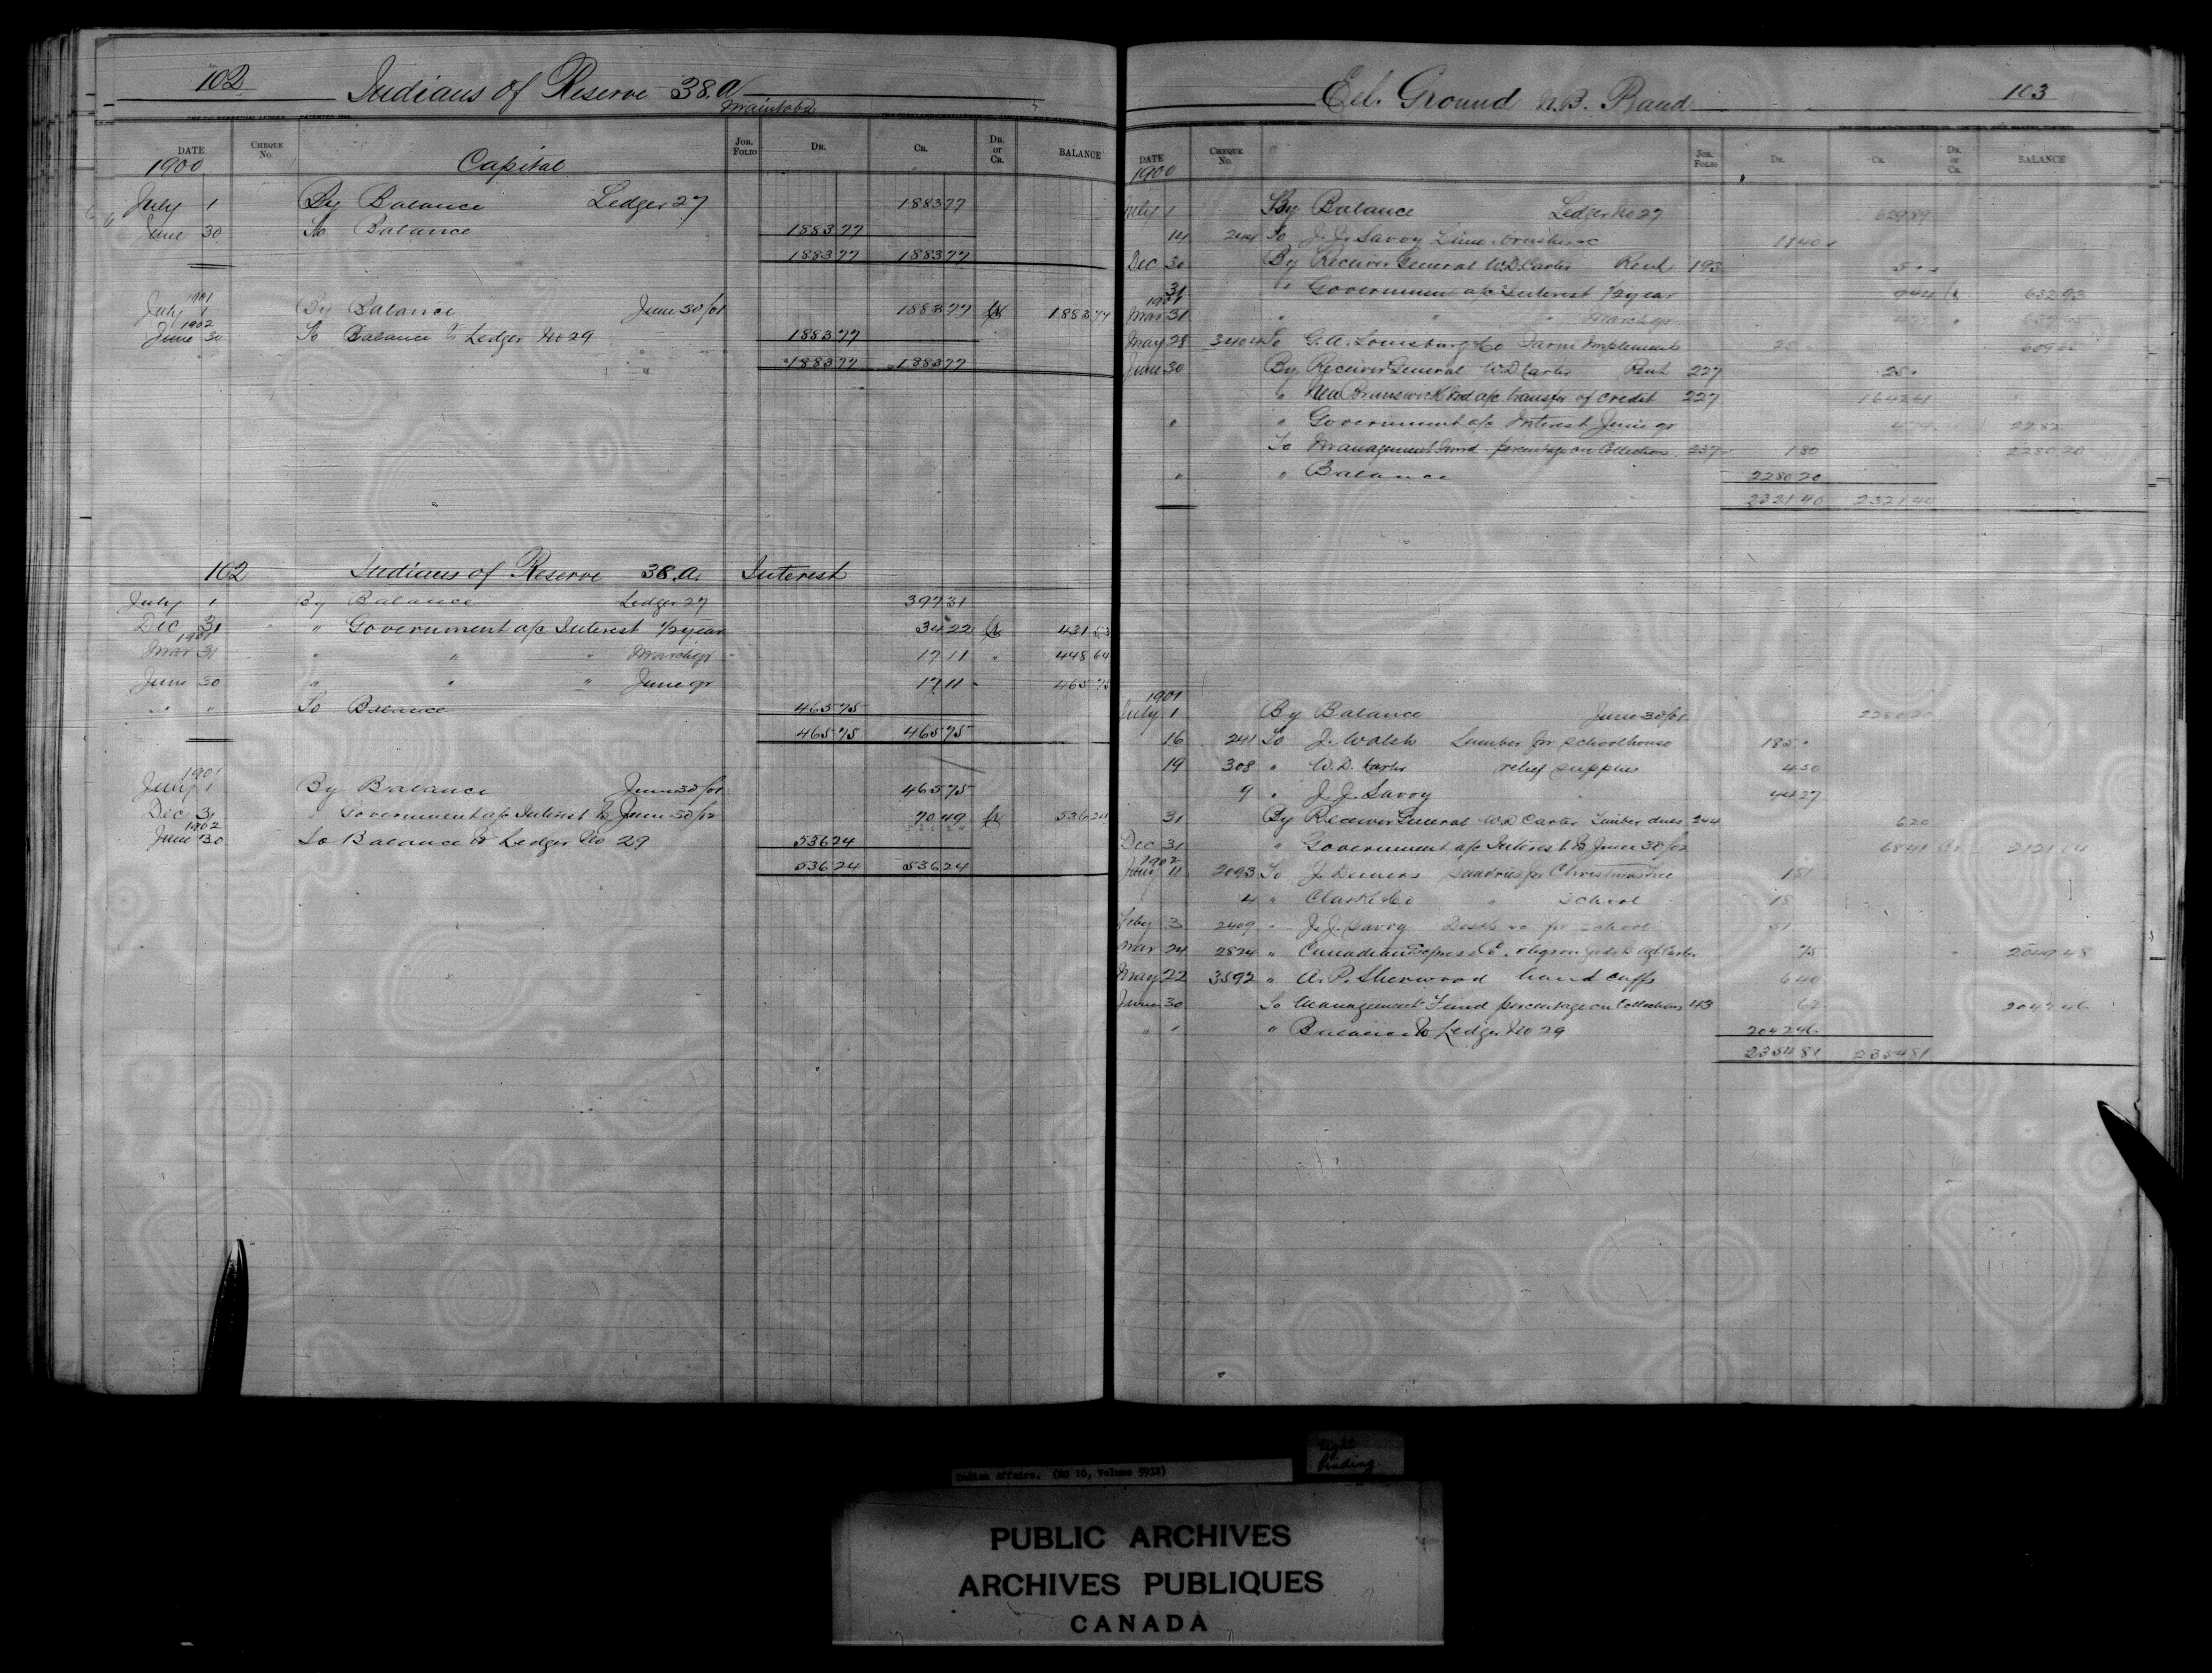 102 Indians of Reserve 38.a
Manitoba
DATE CHEQUE No. JOR. FOLIO DR. CR. DR. or CR. BALANCE
1900 Capital
July 1 By Balance Ledger 27 1883 77
June 30 To Balance 1883 77
1883 77 1883 77
1901
July 1 By Balance June 30/01 1883 77 Cr 1883 77
1902
June 30 To Balance to Ledger No 29 1883 77
1883 77 1883 77
102 Indians of Reserve 38.a. Interest
July 1 By Balance Ledger 27 397 31
Dec 31 " Government a/c Interest 1/2 year 34 22 Cr 431 53
1901
Mar 31 " " " March qr 17 11 " 448 64
June 30 " " " June qr 17 11 465 75
" " To Balance 465 75
465 75 465 75
1901
July 1 By Balance June 30/01 465 75
Dec 31 " Government a/c Interest to June 30/02 70 49 Cr 536 24
1902
June 30 To Balance to Ledger No 29 536 24
536 24 536 24
Eel Ground N.B. Band 103
DATE CHEQUE No. JOR. FOLIO DR. CR. DR. or CR. BALANCE
1900
July 1 By Balance Ledger No 27 629 89
14 244 To J. J. Savoy Lime brushes &c 11 40
Dec 30 By Receiver General W.D. Carter Rent 193 5
31 " Government a/c Interest 1/2 year 9 44 Cr 632 93
1901
Mar 31 " " " March qr
May 28 3404 To G. A. Lounsbury & Co Farm Implements 25
June 30 By Receiver General W.D. Carter Rent 227 25
" New Brunswick Ind a/c transfer of credit 227 1642 61
" " Government a/c Interest June qr 2282
To Management Fund percentage on Collections 237 1 80 2280 20
" " Balance 2280 20
2321 40 2321 40
1901
July 1 By Balance June 30/01 2280 20
16 241 To J. Walsh Lumber for schoolhouse 185
19 308 " W. D. Carter relief supplies 4 50
9 " J. J. Savoy " 44 27
31 By Receiver General W.D. Carter Timber dues 244 6 20
Dec 31 " Government a/c Interest to June 30/02 68 41 Cr 2121 04
1902
Jany 11 2093 To J. Demers sundries for Christmas tree 1 81
4 " Clark & Co " school 18
Feby 3 2409 " J. J. Savoy Desks &c for school 51
Mar 24 2824 " Canadian Express Co. chgs on goods to Agt Carter 75 " 2049 48
May 22 3592 " A. P. Sherwood hand cuffs 6 40
June 30 To Management Fund percentage on Collections 43 62 2042 46
" " " Balance to Ledger No 29 2042 46
2354 81 2354 81
Indian Affairs. (RG 10, Volume 5932)
tight
binding
PUBLIC ARCHIVES
ARCHIVES PUBLIQUES
CANADA